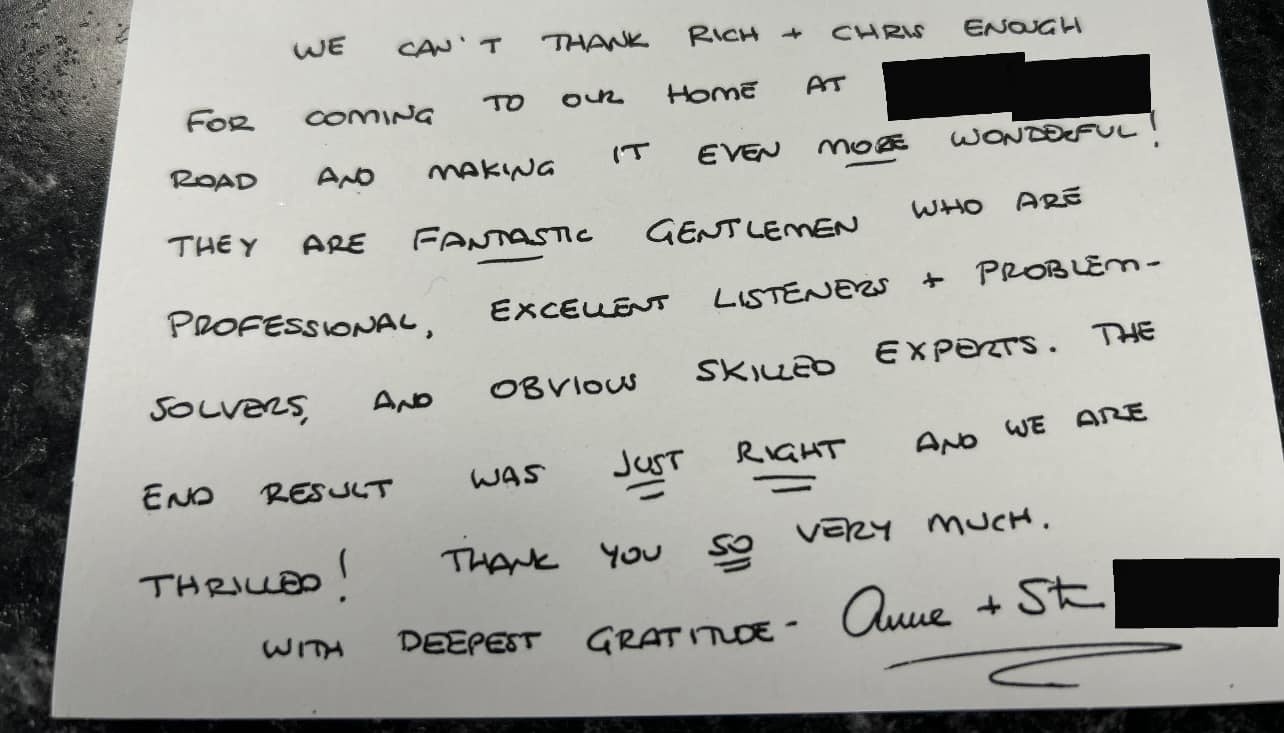 WE CAN'T THANK RICH + CHRIS ENOUGH
FOR COMING TO OUR HOME AT
ROAD AND MAKING IT EVEN MORE WONDERFUL!
THEY ARE FANTASTIC GENTLEMEN WHO ARE
PROFESSIONAL, EXCELLENT LISTENERS + PROBLEM-
SOLVERS, AND OBVIOUS SKILLED EXPERTS. THE
END RESULT WAS JUST RIGHT AND WE ARE
THRILLED! THANK YOU SO VERY MUCH.
WITH DEEPEST GRATITUDE - Anne +